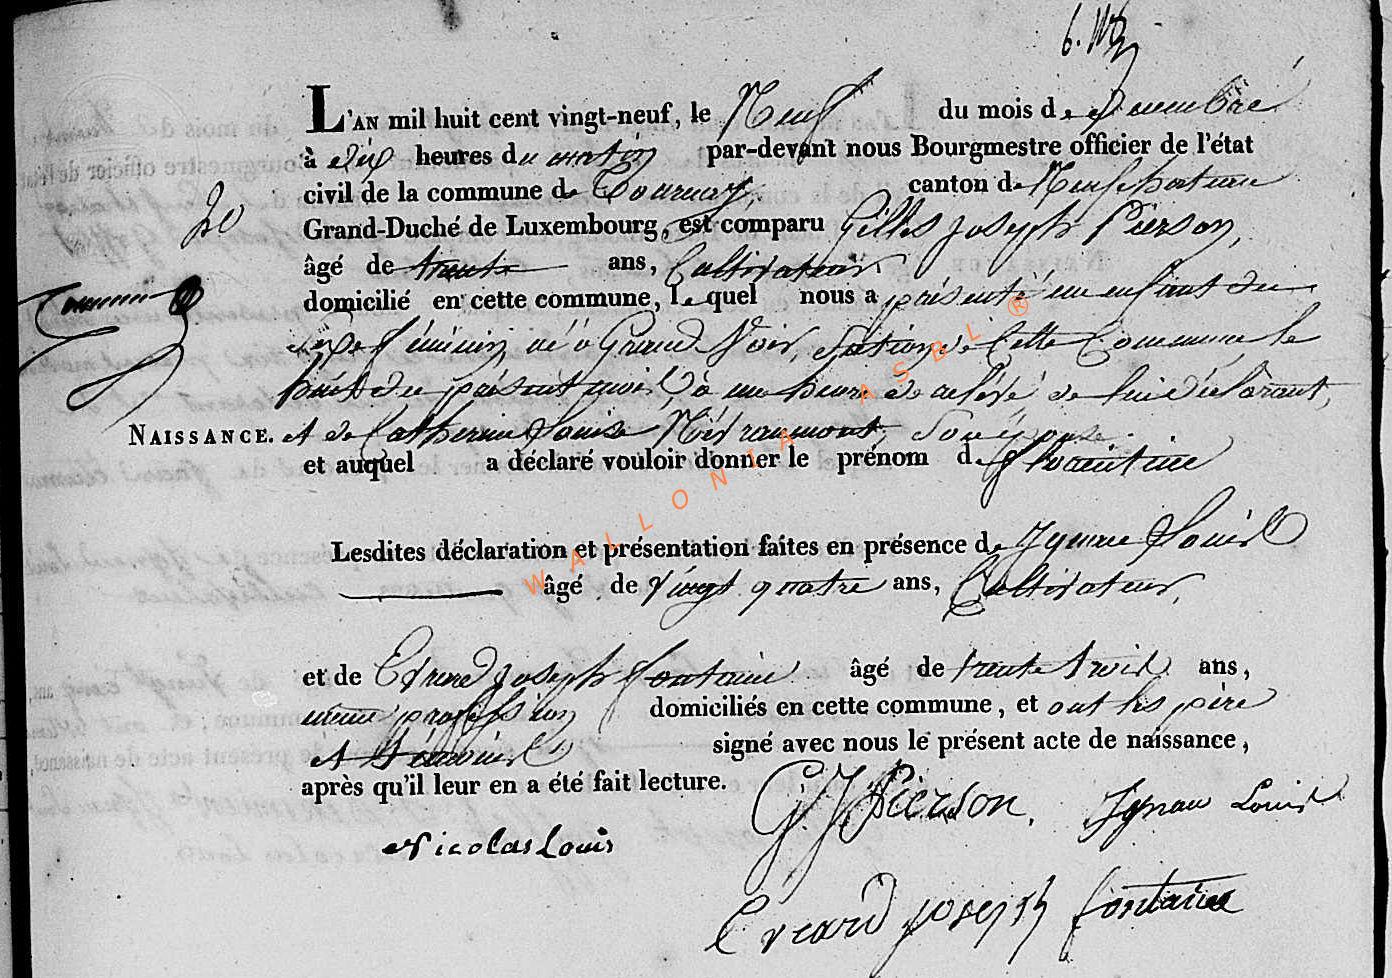 L'AN mil huit cent vingt-neuf, le Neuf du mois de Decembre
à dix heures du matin par-devant nous Bourgmestre officier de l'état
civil de la commune de Tournay, canton de Neufchateau
20
Grand-Duché de Luxembourg, est comparu Gilles Joseph Pierson,
âgé de trente ans, Cultivateur
domicilié en cette commune, lequel nous a présenté un enfant du
sexe féminin né à Grand Voir, Section de Cette Commune le
huit du présent mois, à une heure de relevé de lui déclarant,
NAISSANCE. et de Catherine Louise Népraumont, Son épouse.
et auquel a déclaré vouloir donner le prénom de Florentine
Lesdites déclaration et présentation faites en présence de Ignace Louis
âgé de vingt quatre ans, Cultivateur,
et de Evrard Joseph fontaine âgé de trente trois ans,
même profession domiciliés en cette commune, et ont les père
et témoins signé avec nous le présent acte de naissance,
après qu'il leur en a été fait lecture.
G. J. Pierson. Ignace Louis
Nicolas Louis
Evrard joseph fontaine
WALLONIA ASBL ®